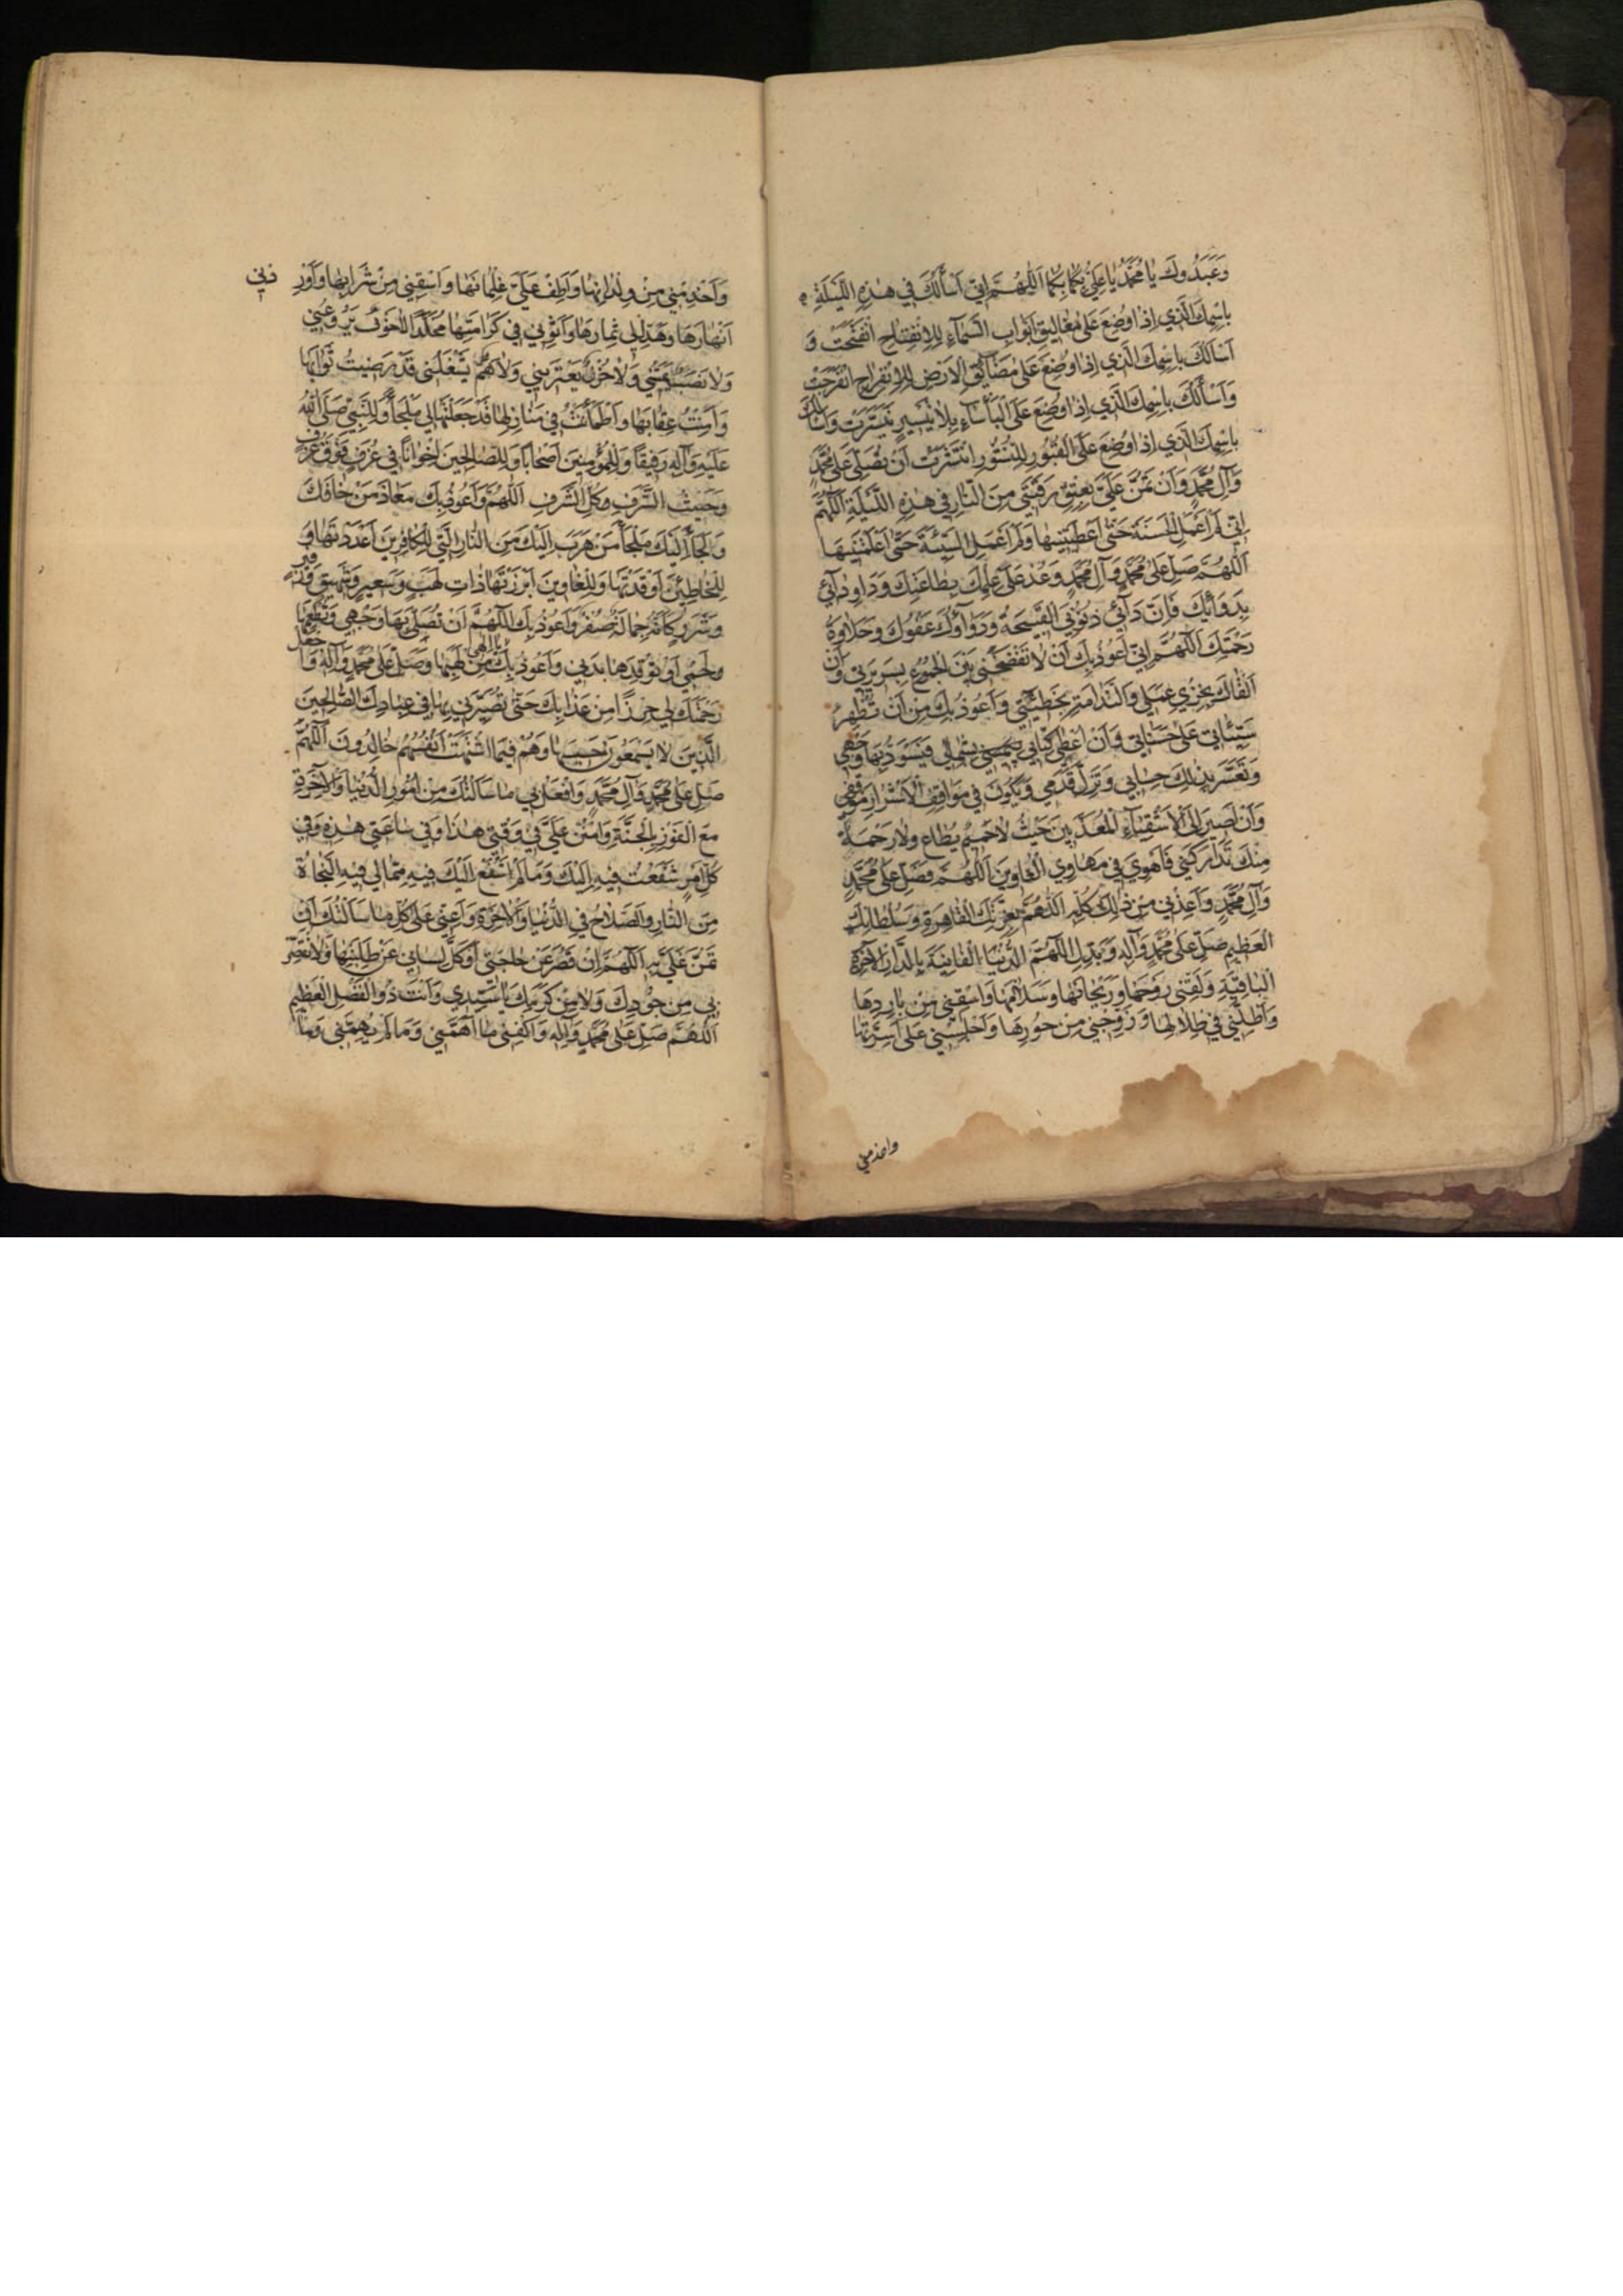 وَعَبَدُوكَ يَا مُحَمَّدُ يَا عَلِيُّ بِكُمَا بِكُمَا اَللّٰهُمَّ اِنّي اَسْأَلُكَ في هٰذِهِ اللَّيْلَةِ
بِاسْمِكَ الَّذي اِذا وُضِعَ عَلى مَغاليقِ اَبْوابِ السَّمآءِ لِلاِنْفِتاحِ انْفَتَحَتْ وَ
اَسْأَلُكَ بِاسْمِكَ الَّذي اِذا وُضِعَ عَلى مَضآئِقِ الْاَرْضِ لِلاِنْفِراجِ انْفَرَجَتْ
وَاَسْأَلُكَ بِاسْمِكَ الَّذي اِذا وُضِعَ عَلَى الْبَأْسآءِ لِلتَّيْسيرِ تَيَسَّرَتْ وَاَسْأَلُكَ
بِاسْمِكَ الَّذي اِذا وُضِعَ عَلَى الْقُبُورِ لِلنُّشُورِ انْتَشَرَتْ اَنْ تُصَلِّيَ عَلى مُحَمَّدٍ
وَآلِ مُحَمَّدٍ وَاَنْ تَمُنَّ عَلَيَّ بِعِتْقِ رَقَبَتي مِنَ النّارِ في هٰذِهِ اللَّيْلَةِ اَللّٰهُمَّ
اِنّي لَمْ اَعْمَلِ الْحَسَنَةَ حَتّى اَعْطَيْتَنيها وَلَمْ اَعْمَلِ السَّيِّئَةَ حَتّى اَعْلَمْتَنيها
اَللّٰهُمَّ صَلِّ عَلى مُحَمَّدٍ وَآلِ مُحَمَّدٍ وَعُدْ عَلى عِلْمِكَ بِطاعَتِكَ وَداوِ دآئي
بِدَوآئِكَ فَاِنَّ دآئي ذُنُوبِيَ الْقَبيحَةُ وَدَوآؤُكَ عَفْوُكَ وَحَلاوَةُ
رَحْمَتِكَ اَللّٰهُمَّ اِنّي اَعُوذُ بِكَ اَنْ لا تَفْضَحَني بَيْنَ الْجُمُوعِ بِسَريرَتي وَاَنْ
اَلْقاكَ بِخِزْيِ عَمَلي وَالنَّدامَةِ بِخَطيئَتي وَاَعُوذُ بِكَ مِنْ اَنْ تُظْهِرَ
سَيِّئاتي عَلى حَسَناتي وَاَنْ اُعْطى كِتابي بِشِمالي فَيَسْوَدَّ بِها وَجْهي
وَتَعَسَّرَ بِذٰلِكَ حِسابي وَتَزِلَّ قَدَمي وَيَكُونَ في مَواقِفِ الْاَشْرارِ مَوْقِفي
وَاَنْ اَصيرَ اِلَى الْاَشْقِيآءِ الْمُعَذَّبينَ حَيْثُ لا حَميمٌ يُطاعُ وَلا رَحْمَةٌ
مِنْكَ تَدارَكَني فَاَهْوِيَ في مَهاوِي الْغاوينَ اَللّٰهُمَّ فَصَلِّ عَلى مُحَمَّدٍ
وَآلِ مُحَمَّدٍ وَاَعِذْني مِنْ ذٰلِكَ كُلِّهِ اَللّٰهُمَّ بِعِزَّتِكَ الْقاهِرَةِ وَسُلْطانِكَ
الْعَظيمِ صَلِّ عَلى مُحَمَّدٍ وَآلِهِ وَبَدِّلِ اللّٰهُمَّ الدُّنْيَا الْفانِيَةَ بِالدّارِ الْآخِرَةِ
الْباقِيَةِ وَلَقِّني رَوْحَها وَرَيْحانَها وَسَلامَها وَاسْقِني مِنْ بارِدِها
وَاَظِلَّني في ظِلالِها وَزَوِّجْني مِنْ حُورِها وَاَجْلِسْني عَلى اَسِرَّتِها
واخدمني
وَاَخْدِمْني مِنْ وِلْدانِها وَاَطِفْ عَلَيَّ غِلْمانَها وَاسْقِني مِنْ شَرابِها وَاَوْرِ دْني
اَنْهارَها وَهَدِّلْ لي ثِمارَها وَاَثْوِني في كَرامَتِها مُخَلَّدًا لا خَوْفٌ يَرُوعُني
وَلا نَصَبٌ يَمَسُّني وَلا حُزْنٌ يَعْتَريني وَلا هَمٌّ يَشْغَلُني قَدْ رَضيتُ ثَوابَها
وَاَمِنْتُ عِقابَها وَاطْمَأْنَنْتُ في مَنازِلِها قَدْ جَعَلْتَها لي مَلْجَأً وَلِلنَّبِيِّ صَلَّى اللهُ
عَلَيْهِ وَآلِهِ رَفيقًا وَلِلْمُؤْمِنينَ اَصْحابًا وَلِلصّالِحينَ اِخْوانًا في غُرَفٍ فَوْقَ غُرَفٍ
وَحَيْثُ الشَّرَفِ وَكُلِّ الشَّرَفِ اَللّٰهُمَّ وَاَعُوذُ بِكَ مَعاذَ مَنْ خافَكَ
وَاَلْجَأُ اِلَيْكَ مَلْجَأَ مَنْ هَرَبَ اِلَيْكَ مِنَ النّارِ الَّتي لِلْكافِرينَ اَعْدَدْتَها وَ
لِلْخاطِئينَ اَوْقَدْتَها وَلِلْغاوينَ اَبْرَزْتَها ذاتِ لَهَبٍ وَسَعيرٍ وَشَهيقٍ وَزَفيرٍ
وَشَرَرٍ كَاَنَّهُ جِمالَةٌ صُفْرٌ وَاَعُوذُ بِكَ اللّٰهُمَّ اَنْ تُصْلِيَ بِها وَجْهي وَتُطْعِمَها
لَحْمي اَوْ تُوقِدَها بَدَني وَاَعُوذُ بِكَ يا اِلٰهي مِنْ لَهَبِها وَصَلِّ عَلى مُحَمَّدٍ وَآلِهِ وَاجْعَلْ
رَحْمَتَكَ لي حِرْزًا مِنْ عَذابِكَ حَتّى تُصَيِّرَني بِها في عِبادِكَ الصّالِحينَ
الَّذينَ لا يَسْمَعُونَ حَسيسَها وَهُمْ فيمَا اشْتَهَتْ اَنْفُسُهُمْ خالِدُونَ اَللّٰهُمَّ
صَلِّ عَلى مُحَمَّدٍ وَآلِ مُحَمَّدٍ وَافْعَلْ بي ما سَأَلْتُكَ مِنْ اُمُورِ الدُّنْيا وَالْآخِرَةِ
مَعَ الْفَوْزِ بِالْجَنَّةِ وَامْنُنْ عَلَيَّ في وَقْتي هٰذا وَفي ساعَتي هٰذِهِ وَفي
كُلِّ اَمْرٍ شَفَعْتُ فيهِ اِلَيْكَ وَما لَمْ اَشْفَعْ اِلَيْكَ فيهِ مِمّا لي فيهِ النَّجاةُ
مِنَ النّارِ وَالصَّلاحُ فِي الدُّنْيا وَالْآخِرَةِ وَاَعِنّي عَلى كُلِّ ما سَأَلْتُكَ اَنْ
تَمُنَّ عَلَيَّ بِهِ اَللّٰهُمَّ اِنْ قَصُرَ عَنْ حاجَتي اَوْ كَلَّ لِساني عَنْ طَلِبَتِها فَلا تُقَصِّرْ
بي مِنْ جُودِكَ وَلا مِنْ كَرَمِكَ يا سَيِّدي وَاَنْتَ ذُو الْفَضْلِ الْعَظيمِ
اَللّٰهُمَّ صَلِّ عَلى مُحَمَّدٍ وَآلِهِ وَاكْفِني ما اَهَمَّني وَما لَمْ يُهِمَّني وَما